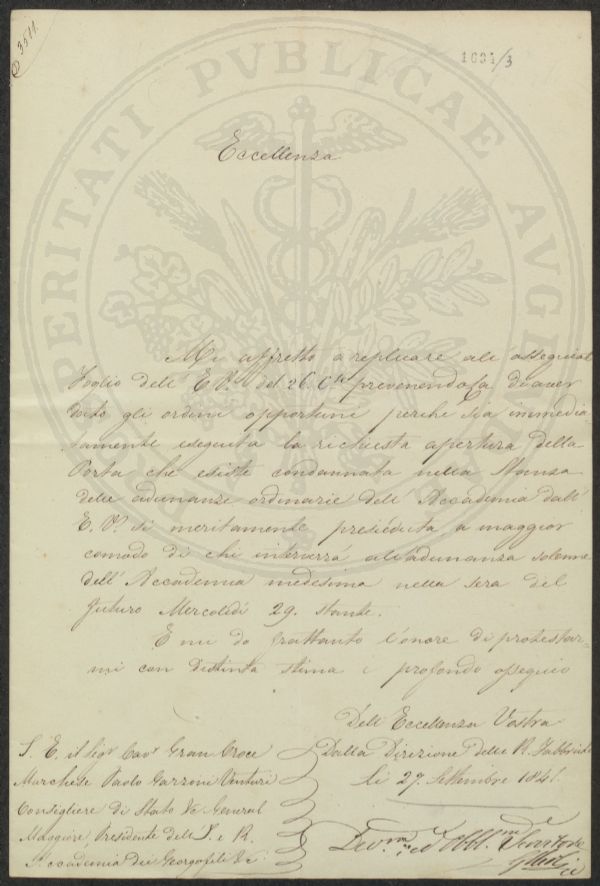 3511.
1031/3
PROSPERITATI PVBLICAE AVGENDAE
Eccellenza
Mi affretto a replicare all' ossequiat.
Foglio dell' E. V. del 26. Cte prevenendola di aver
dato gli ordini opportuni perche sia immedia
tamente eseguita la richiesta apertura della
Porta che esiste condannata nella Stanza
delle adunanze ordinarie dell' Accademia dall'
E. V. si meritamente presieduta, a maggior
comodo di chi interverrà all'adunanza solenne
dell' Accademia medesima nella sera del
futuro Mercoledì 29. stante.
E mi do frattanto l'onore di protestar=
mi con distinta stima e profondo ossequio
Dell' Eccellenza Vostra
S. E. il Sigr Cavr Gran Croce
Marchese Paolo Garzoni Venturi
Consigliere di Stato Ve General
Maggiore, Presidente dell' I. e R.
Accademia dei Georgofili
Dalla Direzione delle R. Fabbriche
Li 27. Settembre 1841.
Devmo ed Obblmo Servitore